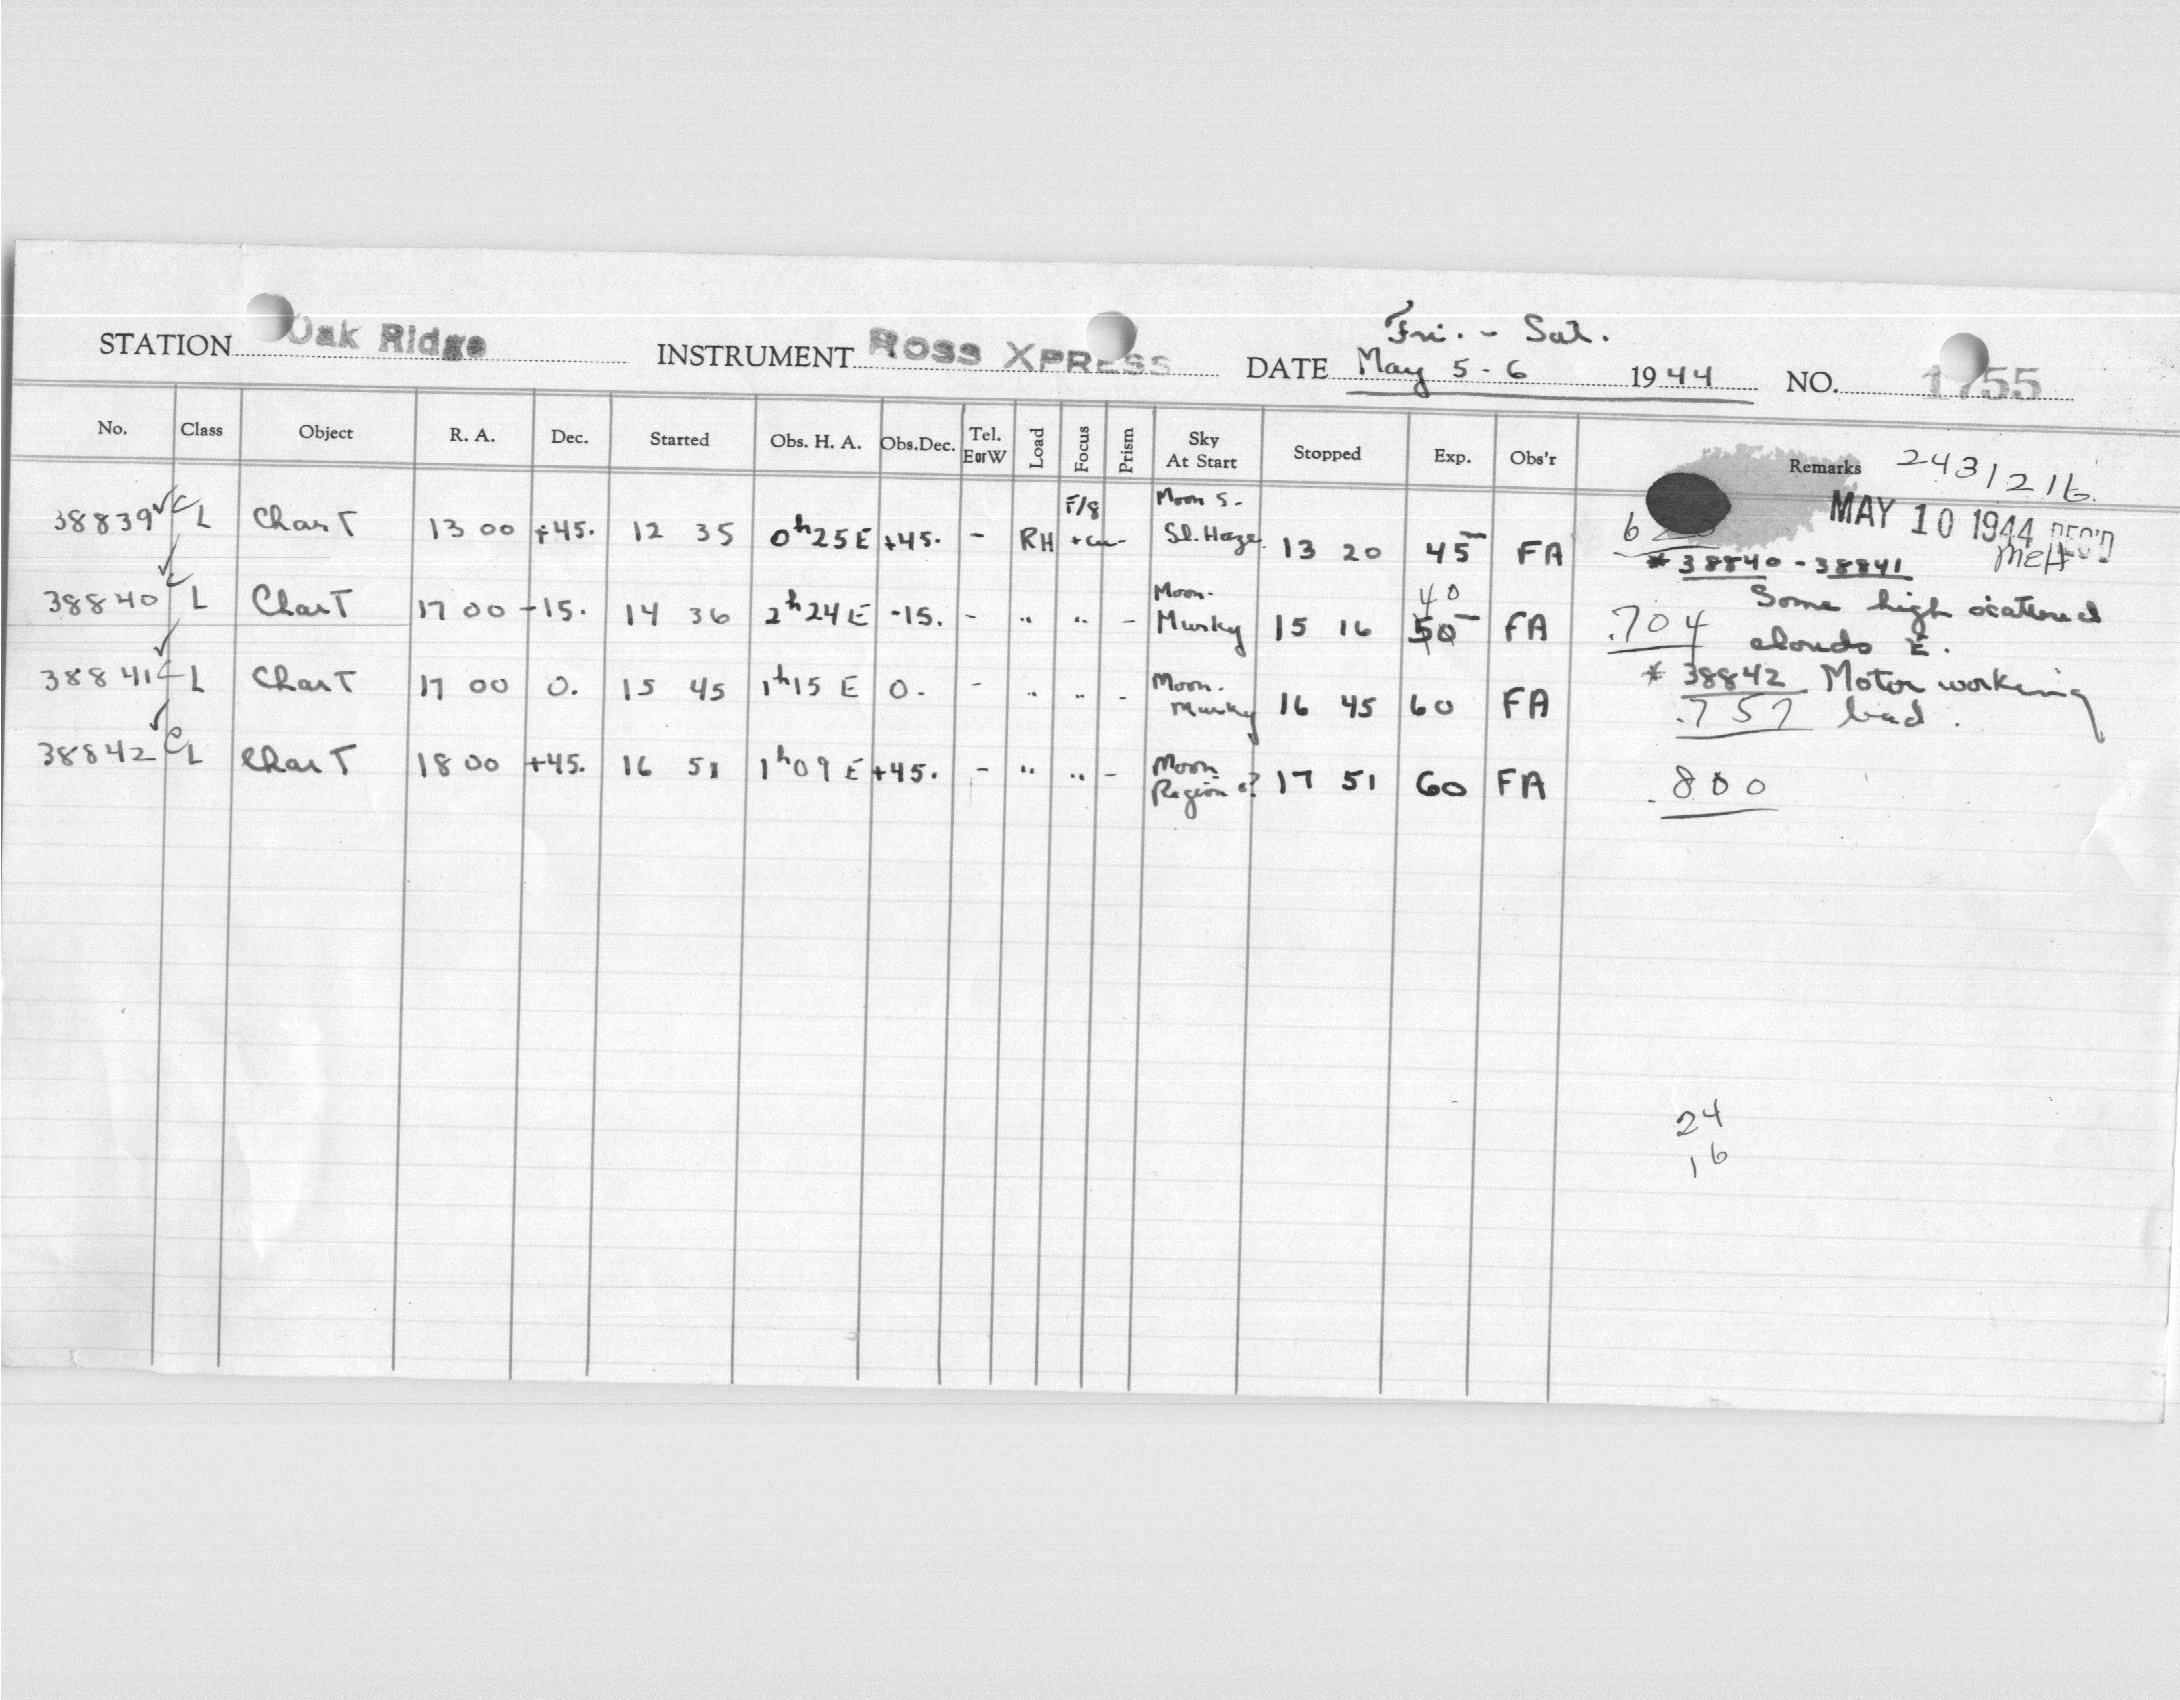 Fri. - Sat.
STATION Oak Ridge INSTRUMENT ROSS XPRESS DATE May 5 - 6 1944 NO. 1755
No. Class Object R. A. Dec. Started Obs. H. A. Obs.Dec. Tel. EorW Load Focus Prism Sky At Start Stopped Exp. Obs'r Remarks 2431216.
MAY 10 1944 REC'D
MEH
38839 ✓ C L Chart 13 00 +45. 12 35 0h25E +45. - RH F/8 Moon S- Sl. Haze. 13 20 45 FA
* 38840 - 38841
38840 ✓ C L Chart 17 00 -15. 14 36 2h24E -15. - " " - Moon- Murky 15 16 40 50 FA
Some high scattered
.704 clouds E.
38841 ✓ C L Chart 17 00 0. 15 45 1h15 E 0. - " " - Moon- Murky 16 45 60 FA
* 38842 Motor working
.757 bad.
38842 ✓ C L Chart 18 00 +45. 16 51 1h09 E +45. - " " - Moon- Region e? 17 51 60 FA
.800
24
16